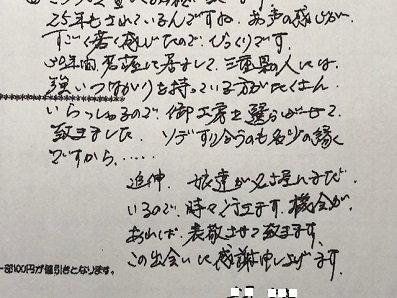 25年もされているんですね. お声の感じが.
すごく若く感じたので. びっくりです.
年間. 名古屋に居まして. 三重県の人には.
強いつながりを持っている方がたくさん.
いらっしゃるので. 御工房を選らばせて
致きました. ソデすり合うのも多少の縁
ですから......
追伸. 娘達が名古屋にまだ
いるので. 時々行きます. 機会が.
あれば. 表敬させて致ます.
この出会いに感謝申し上げます.
一部100円が値引きとなります。